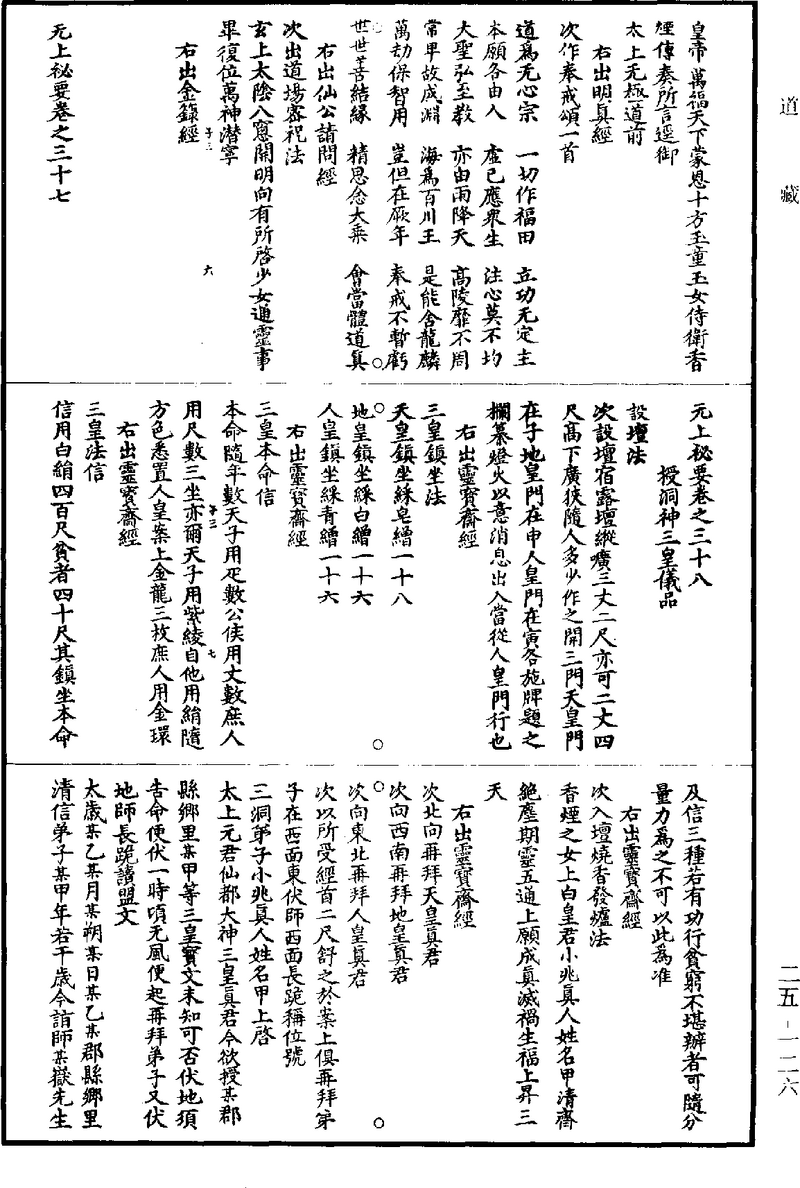 道藏
皇帝萬福天下蒙恩十方玉童玉女侍衛香
煙傳奏所言逕御
太上无極道前
右出明真經
次作奉戒頌一首
道為无心宗 一切作福田 立功无定主
本願各由人 虛已應眾生 注心莫不均
大聖弘至教 亦由雨降天 高陵靡不周
常卑故成淵 海為百川王 是能舍龍麟
萬劫保智用 豈但在厥年 奉戒不暫虧
世世善結緣 精思念大乘 會當體道真
右出仙公請問經
次出道場密祝法
玄上太陰八窻開明向有所啓少女通靈事
畢復位萬神潛寧
右出金籙經
无上祕要卷之三十七
六
无上祕要卷之三十八
授洞神三皇儀品
設壇法
次設壇宿露壇縱曠三丈二尺亦可二丈四
尺高下廣狹隨人多少作之開三門天皇門
在子地皇門在申人皇門在寅各施牌題之
欄纂燈火以意消息出入當從人皇門行也
右出靈寶齋經
三皇鎮坐法
天皇鎮坐綵皂繒一十八
地皇鎮坐綵白繒一十六
人皇鎮坐綵青繒一十六
右出靈寶齋經
三皇本命信
本命隨年數天子用疋數公侯用丈數庶人
用尺數三坐亦爾天子用紫綾自他用絹隨
方色悉置人皇案上金龍三枚庶人用金環
右出靈寶齋經
三皇法信
信用白絹四百尺貧者四十尺其鎮坐本命
七
及信三種若有功行貧窮不堪辦者可隨分
量力為之不可以此為准
右出靈寶齋經
次入壇燒香發爐法
香煙之女上白皇君小兆真人姓名甲清齋
絕塵期靈五通上願成真滅禍生福上昇三
天
右出靈寶齋經
次北向再拜天皇真君
次向西南再拜地皇真君
次向東北再拜人皇真君
次以所受經首二尺舒之於案上俱再拜弟
子在西面東伏師西面長跪稱位號
三洞弟子小兆真人姓名甲上啓
太上元君仙都大神三皇真君今欲授某郡
縣鄉里某甲等三皇寶文未知可否伏地須
告命便伏一時頃无風便起再拜弟子又伏
地師長跪讀盟文
太歲某乙某月某朔某日某乙某郡縣鄉里
清信弟子某甲年若干歲今詣師某嶽先生
二五-一二六